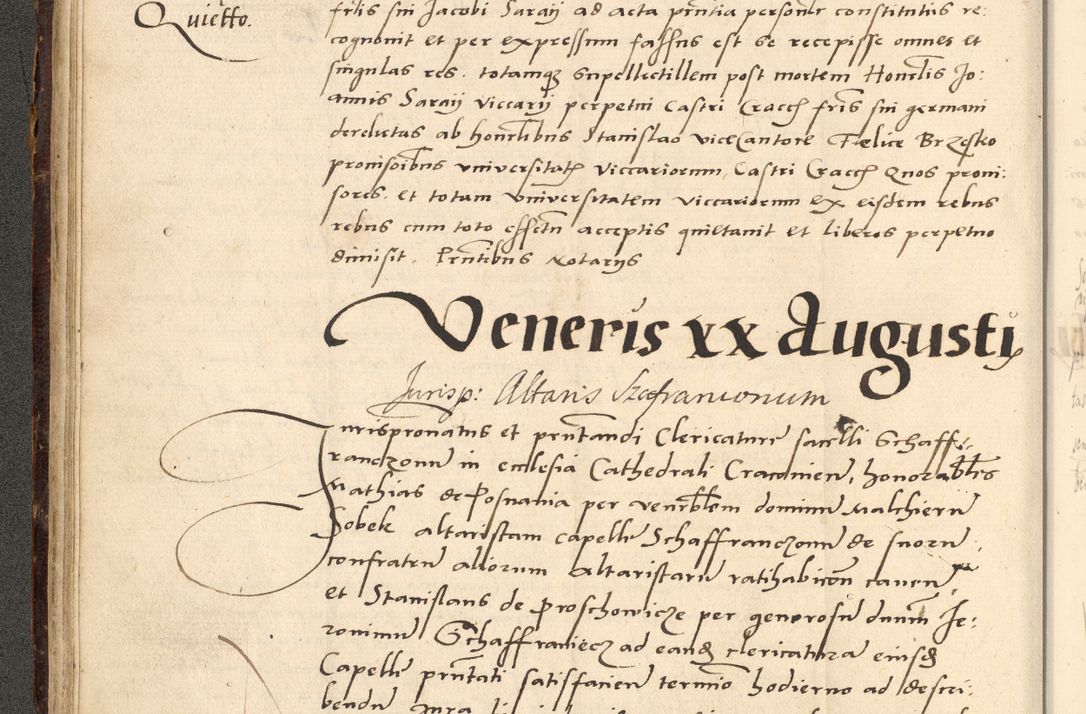 Quietto.
fr̄is sui Jacobi Saraÿ ad acta pn̄tia personr̄ constitutus re:
cognovit et per expressum fassus est se recepisse omnes et
singulas res. totamqꝫ supellectillem post mortem Honr̄lis Jo:
annis Saraÿ viccarÿ perpetui Castri Cracch̄ fr̄is sui germani
derelictas ab honr̄libus Stanislao viceCantore Fœlice Brzesko
provisoibus universitatis viccariorum, Castri Cracch̄ Quos provi:
sores. et totam universitatem viccariorum ex eisdem rebus
rebus cum toto effectu acceptis quietavit et liberos perpetuo
dimisit. Prn̄tibus notarÿs
Veneris xx Augusti
Jurisp: Altaris Szafrancionum
Jurispronatus et prn̄tandi Clericaturē sacelli Schaff:
ranczonū in ecclesia Cathedrali Cracovien̄, honorabl̄is
Mathias de Posnania per venr̄blem dominū Malchierū
Sobek altaristam capellē Schaffranczonū de suorū
confratrū aliorum Altaristarū ratihabicōn caven̄
et Stanislaus de Proschowicze per generosū dnūm Je:
ronimū Schaffraniecz ad eandē clericatura eiusdē
Capellē prn̄tati satisfacien̄ termīo hodierno ad descri:
bendū Jura